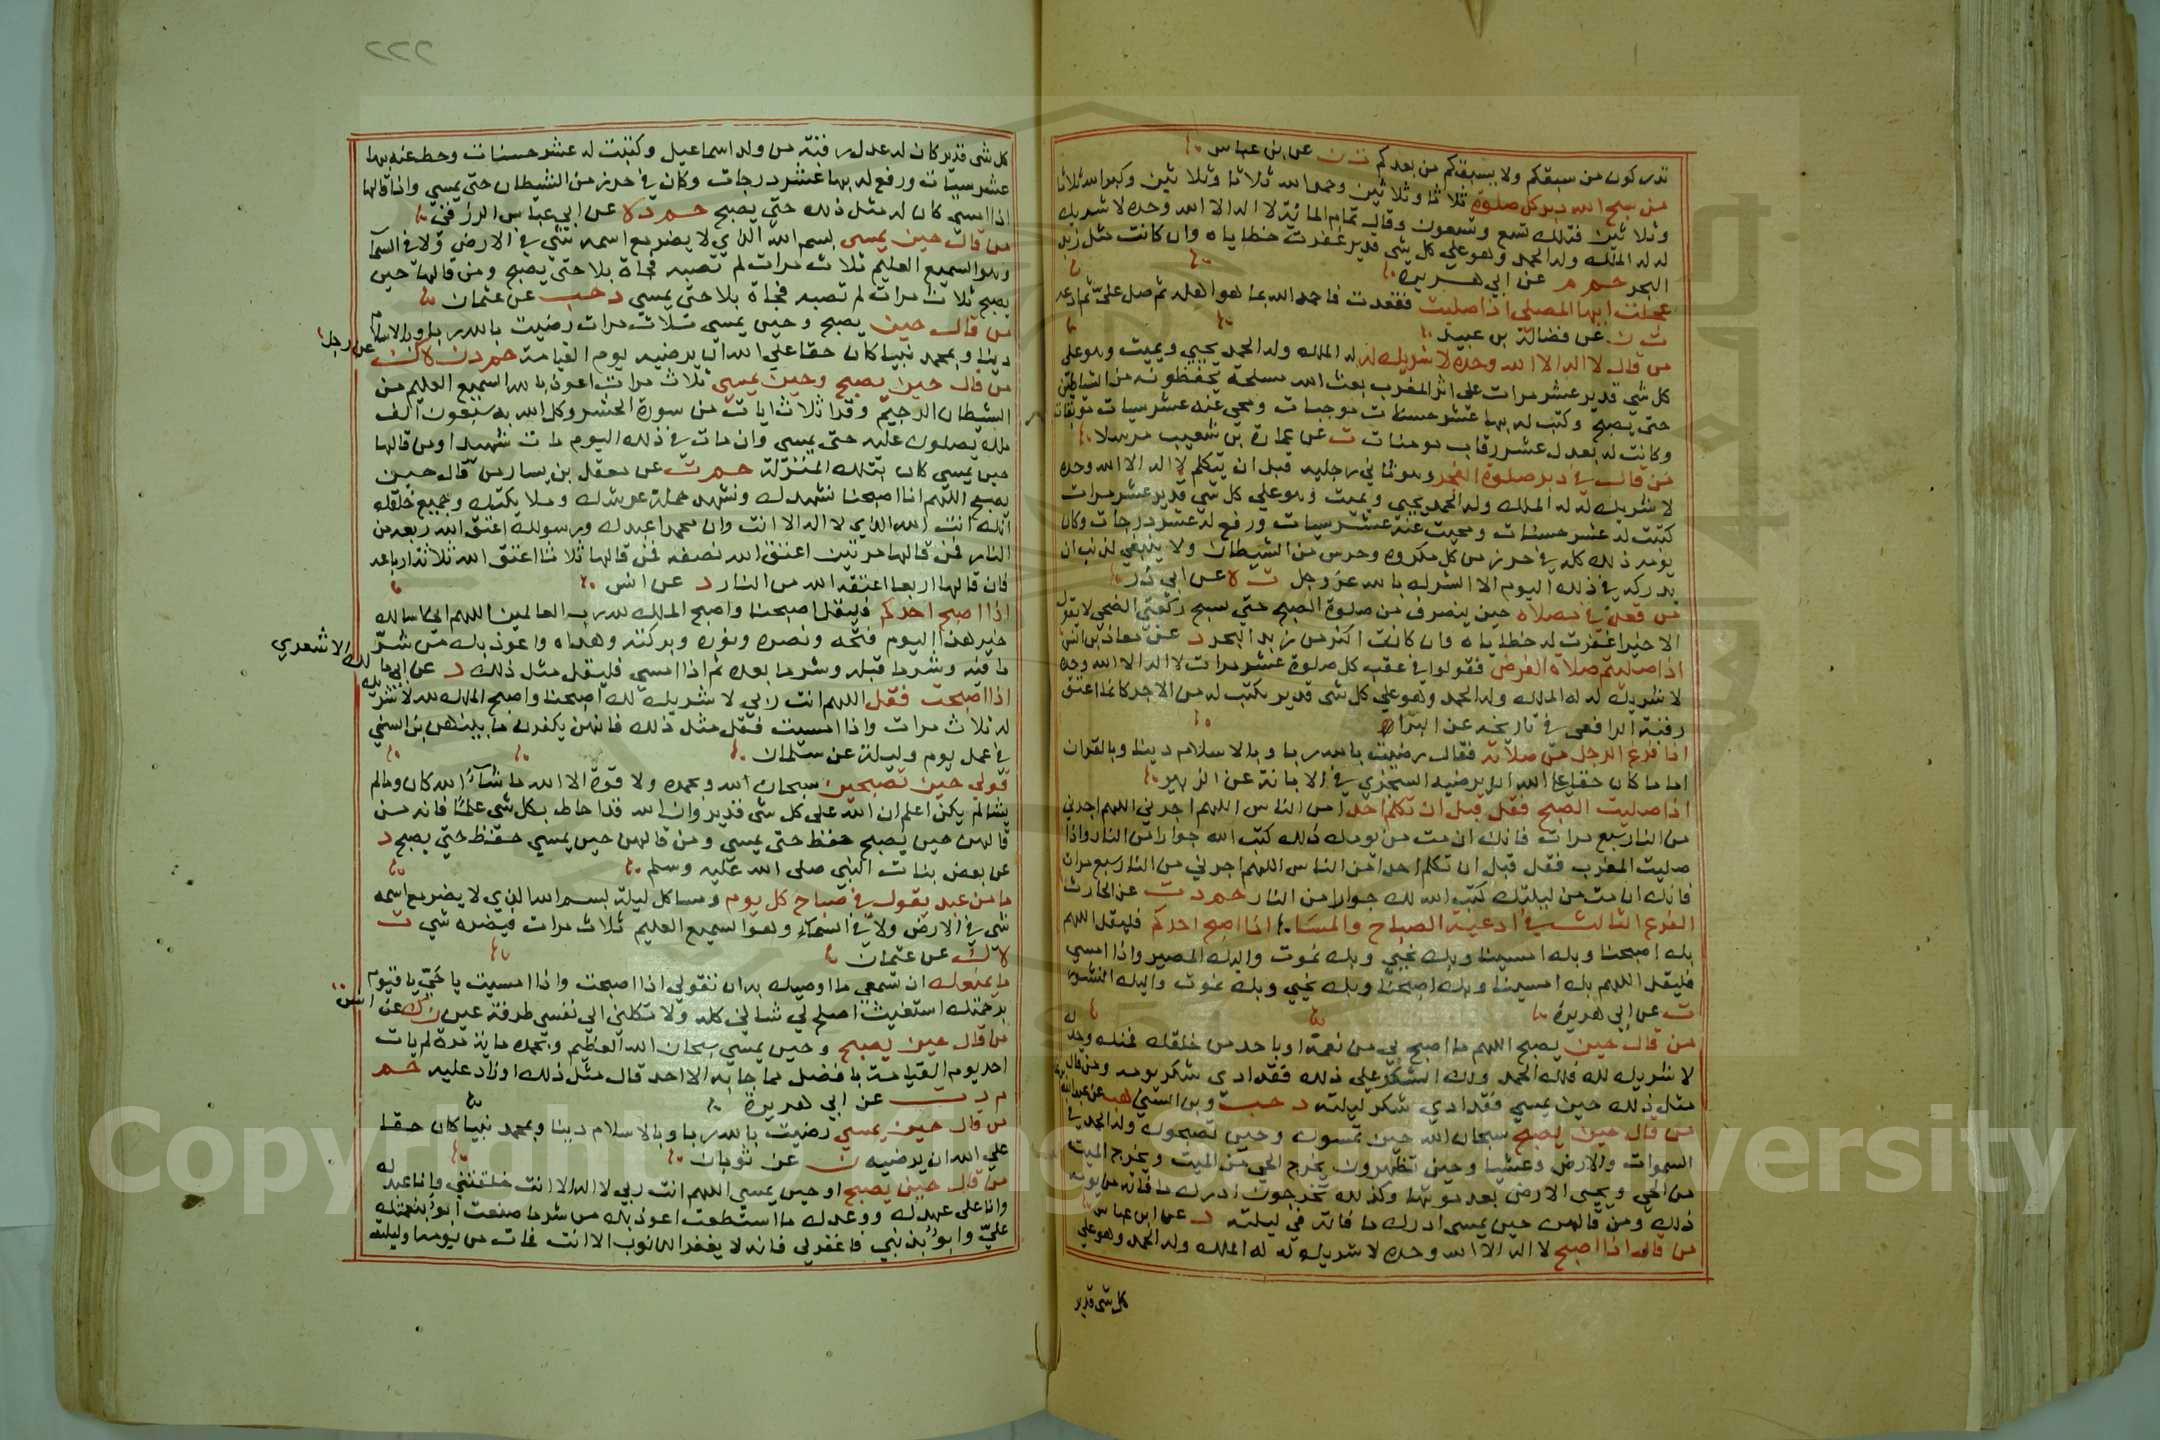 تدركون من سبقكم ولا يسبقكم من بعدكم ت ن عن ابن عباس
من سبح الله دبر كل صلوة ثلاثا وثلاثين وحمد الله ثلاثا وثلاثين وكبر الله ثلاثا
وثلاثين فتلك تسع وتسعون وقال تمام المائة لا اله الا الله وحده لا شريك
له له الملك وله الحمد وهو على كل شي قدير غفرت خطاياه وان كانت مثل زبد
البحر حم م عن ابي هريرة
عجلت ايها المصلي اذا صليت فقعدت فاحمد الله بما هو اهله ثم صل علي ثم ادعه
ت ن عن فضالة بن عبيد
من قال لا اله الا الله وحده لا شريك له له الملك وله الحمد يحيي ويميت وهو على
كل شي قدير عشر مرات على اثر المغرب بعث الله مسلحة يحفظونه من الشيطان
حتى يصبح وكتب له بها عشر حسنات موجبات ومحي عنه عشر سيات موبقات
وكانت له بعدل عشر رقاب مومنات ت عن عمارة بن شعيب مرسلا
من قال في دبر صلوة الفجر وهو ثاني رجليه قبل ان يتكلم لا اله الا الله وحده
لا شريك له له الملك وله الحمد يحيي ويميت وهو على كل شي قدير عشر مرات
كتبت له عشر حسنات ومحيت عنه عشر سيات ورفع له عشر درجات وكان
يومه ذلك كله في حرز من كل مكروه وحرس من الشيطان ولا ينبغي لذنب ان
يدركه في ذلك اليوم الا الشرك بالله عز وجل ت ه عن ابي ذر
من قعد في مصلاه حين ينصرف من صلوة الصبح حتى يسبح ركعتي الضحي لا يقول
الا خيرا غفرت له خطاياه وان كانت اكثر من زبد البحر د عن معاذ بن انس
اذا صليتم صلاة الفرض فقولوا في عقب كل صلوة عشر مرات لا اله الا الله وحده
لا شريك له له الملك وله الحمد وهو على كل شي قدير يكتب له من الاجر كانما اعتق
رقبة الرافعي في تاريخه عن البرا
اذا فرغ الرجل من صلاته فقال رضيت بالله ربا وبالاسلام دينا وبالقران
اماما كان حقا على الله ان يرضيه السجزي في الابانة عن الزبير
اذا صليت الصبح فقل قبل ان تكلم احدا من الناس اللهم اجرني اللهم اجرني
من النار سبع مرات فانك ان مت من يومك ذلك كتب الله جوارا من النار واذا
صليت المغرب فقل قبل ان تكلم احدا من الناس اللهم اجرني من النار سبع مرات
فانك ان مت من ليلتك كتب الله لك جوارا من النار حم د ت عن الحارث
الفرع الثالث في ادعية الصباح والمسا اذا اصبح احدكم فليقل اللهم
بك اصبحنا وبك امسينا وبك نحيي وبك نموت واليك المصير واذا امسي
فليقل اللهم بك امسينا وبك اصبحنا وبك نحيي وبك نموت واليك النشور
ت عن ابي هريرة
من قال حين يصبح اللهم ما اصبح بي من نعمة او باحد من خلقك فمنك وحدك
لا شريك لك فلك الحمد ولك الشكر على ذلك فقد ادي شكر يومه ومن قال
مثل ذلك حين يمسي فقد ادي شكر ليلته د حب وبن السني هب عن عبد الله
من قال حين يصبح سبحان الله حين تمسون وحين تصبحون وله الحمد في
السموات والارض وعشيا وحين تظهرون يخرج الحي من الميت ويخرج الميت
من الحي ويحيي الارض بعد موتها وكذلك تخرجون ادرك ما فاته من يومه
ذلك ومن قالهن حين يمسي ادرك ما فاته في ليلته د عن ابن عباس
من قال اذا اصبح لا اله الا الله وحده لا شريك له له الملك وله الحمد وهو على
كل شي قدير
222
كل شي قدير كان له عدل رقبة من ولد اسماعيل وكتبت له عشر حسنات وحط عنه بها
عشر سيات ورفع له بها عشر درجات وكان في حرز من الشيطان حتى يمسي واذا قالها
اذا امسي كان له مثل ذلك حتى يصبح حم د ه عن ابي عياش الزرقي
من قال حين يمسي بسم الله الذي لا يضر مع اسمه شي في الارض ولا في السما
وهو السميع العليم ثلاث مرات لم تصبه فجاة بلا حتى يصبح ومن قالها حين
يصبح ثلاث مرات لم تصبه فجاة بلا حتى يمسي د حب عن عثمان
من قال حين يصبح وحين يمسي ثلاث مرات رضيت بالله ربا وبالاسلام
دينا وبمحمد نبيا كان حقا على الله ان يرضيه يوم القيامة حم د ن ه ك عن رجل
من قال حين يصبح وحين يمسي ثلاث مرات اعوذ بالله السميع العليم من
الشيطان الرجيم وقرا ثلاث ايات من سورة الحشر وكل الله به سبعون الف
ملك يصلون عليه حتى يمسي وان مات في ذلك اليوم مات شهيدا ومن قالها
حين يمسي كان بتلك المنزلة حم ت عن معقل بن يسار من قال حين
يصبح اللهم انا اصبحنا نشهدك ونشهد حملة عرشك وملايكتك وجميع خلقك
انك انت الله الذي لا اله الا انت وان محمدا عبدك ورسولك اعتق الله ربعه من
النار فمن قالها مرتين اعتق الله نصفه فمن قالها ثلاثا اعتق الله ثلاثة ارباعه
فان قالها اربعا اعتقه الله من النار د عن انس
اذا اصبح احدكم فليقل اصبحنا واصبح الملك لله رب العالمين اللهم اني اسالك
خير هذا اليوم فتحه ونصره ونوره وبركته وهداه واعوذ بك من شر
ما فيه وشر ما قبله وشر ما بعده ثم اذا امسي فليقل مثل ذلك د عن ابي مالك الاشعري
اذا اصبحت فقل اللهم انت ربي لا شريك لك اصبحنا واصبح الملك لله لا شريك
له ثلاث مرات واذا امسيت فقل مثل ذلك فانهن يكفرن ما بينهن بن السني
في عمل يوم وليلة عن سلمان
قولي حين تصبحين سبحان الله وبحمده ولا قوة الا الله ما شاء الله كان وما لم
يشا لم يكن اعلم ان الله على كل شي قدير وان الله قد احاط بكل شي علما فانه من
قالهن حين يصبح حفظ حتى يمسي ومن قالهن حين يمسي حفظ حتى يصبح د
عن بعض بنات النبي صلى الله عليه وسلم
ما من عبد يقول في صباح كل يوم ومسا كل ليلة بسم الله الذي لا يضر مع اسمه
شي في الارض ولا في السماء وهو السميع العليم ثلاث مرات فيضره شي ت
ه ك عن عثمان
ما يمنعك ان تسمعي ما اوصيك به ان تقولي اذا اصبحت واذا امسيت يا حي يا قيوم
برحمتك استغيث اصلح لي شاني كله ولا تكلني الي نفسي طرفة عين ن ك عن انس
من قال حين يصبح وحين يمسي سبحان الله العظيم وبحمده ماية مرة لم يات
احد يوم القيامة بافضل مما جا به الا احد قال مثل ذلك او زاد عليه حم
م د ت عن ابي هريرة
من قال حين يمسي رضيت بالله ربا وبالاسلام دينا وبمحمد نبيا كان حقا
على الله ان يرضيه ت عن ثوبان
من قال حين يصبح او حين يمسي اللهم انت ربي لا اله الا انت خلقتني وانا عبدك
وانا على عهدك ووعدك ما استطعت اعوذ بك من شر ما صنعت ابؤ بنعمتك
علي وابؤ بذنبي فاغفر لي فانه لا يغفر الذنوب الا انت فمات من يومه او ليلته
Copyright © King Saud University